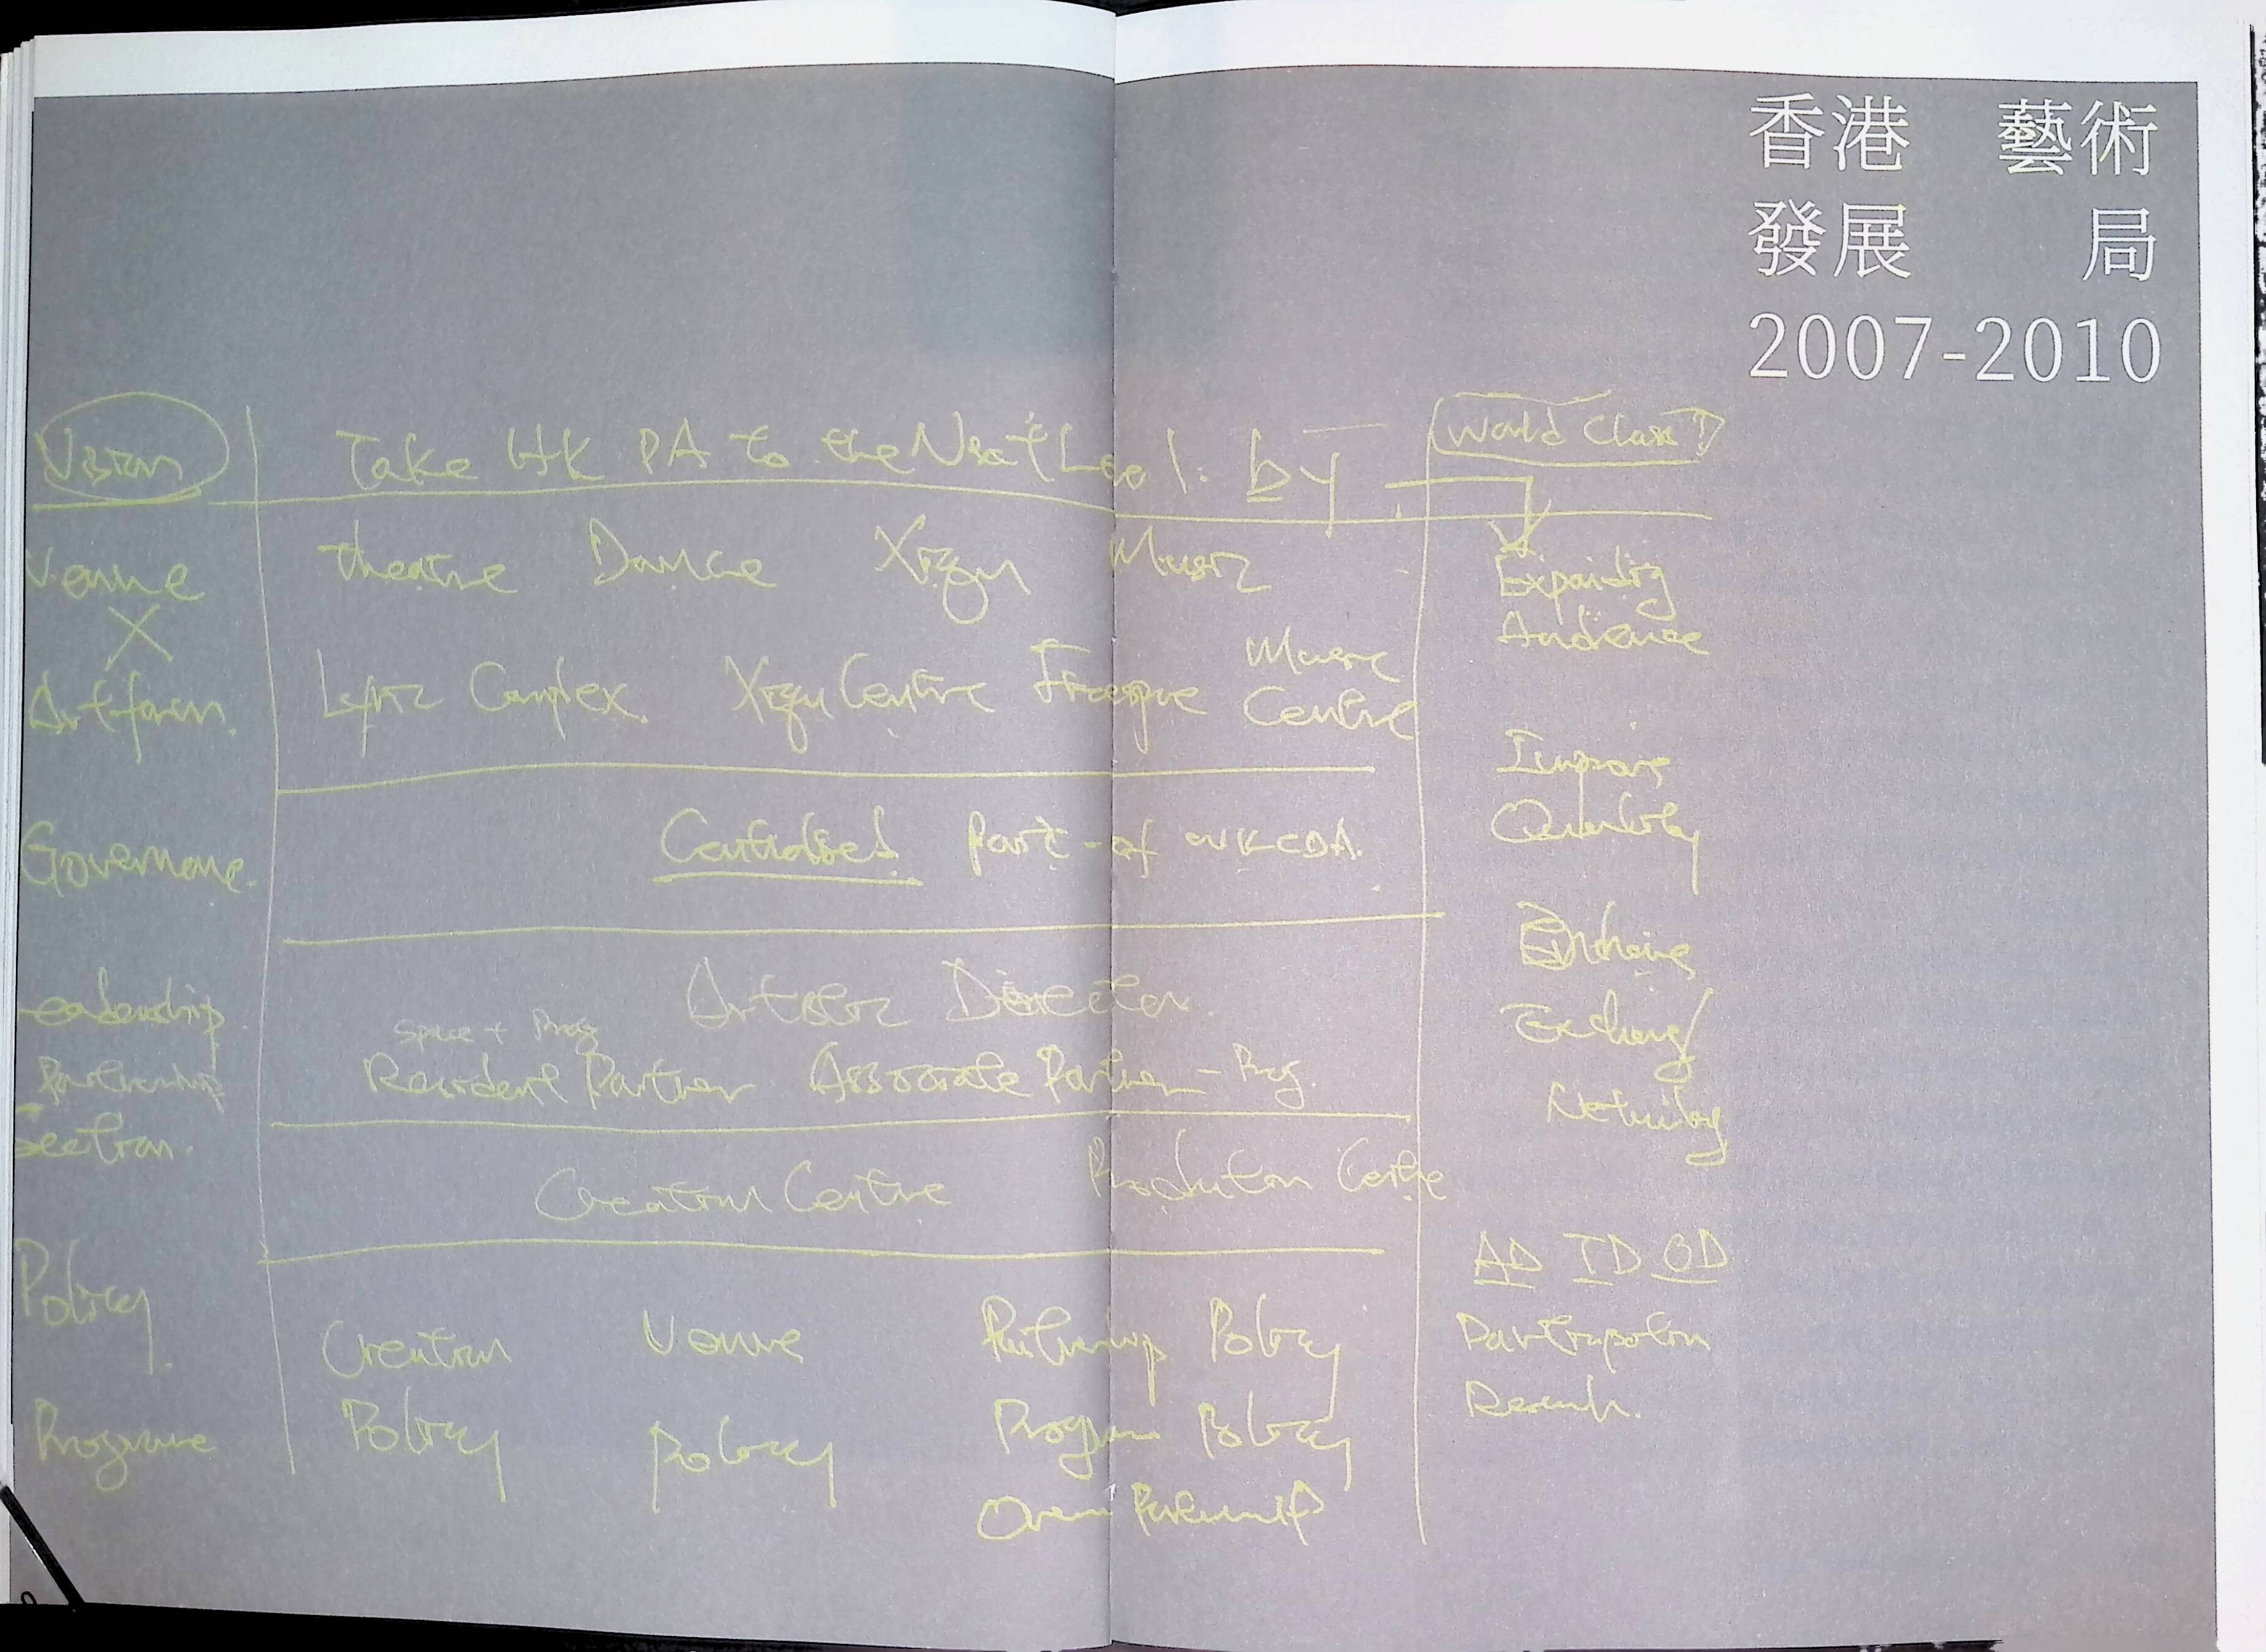 香港 藝術
發展 局
2007-2010
Vision
Take HK PA to the Next Level. by
World Class?
Venue
X
Artform.
Theatre Dance Xiqu Music
Lyric Complex. Xiqu Centre Freespace Music Centre
Expanding
Audience
Improve
Quality
Governance.
Centralised part-of WKCDA.
Enhance
Exchange/
Networking
Leadership
Partnership
Section.
Artistic Director.
Space + Prog
Resident Partner Associate Partner - Prog.
Creation Centre Production Centre
Policy.
Programme
Creation
Policy
Venue
Policy
Partnership Policy
Program Policy
AD ID OD
Participation
Research.